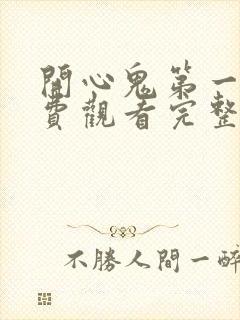 開心鬼第一
費觀看完整
不勝人間一醉